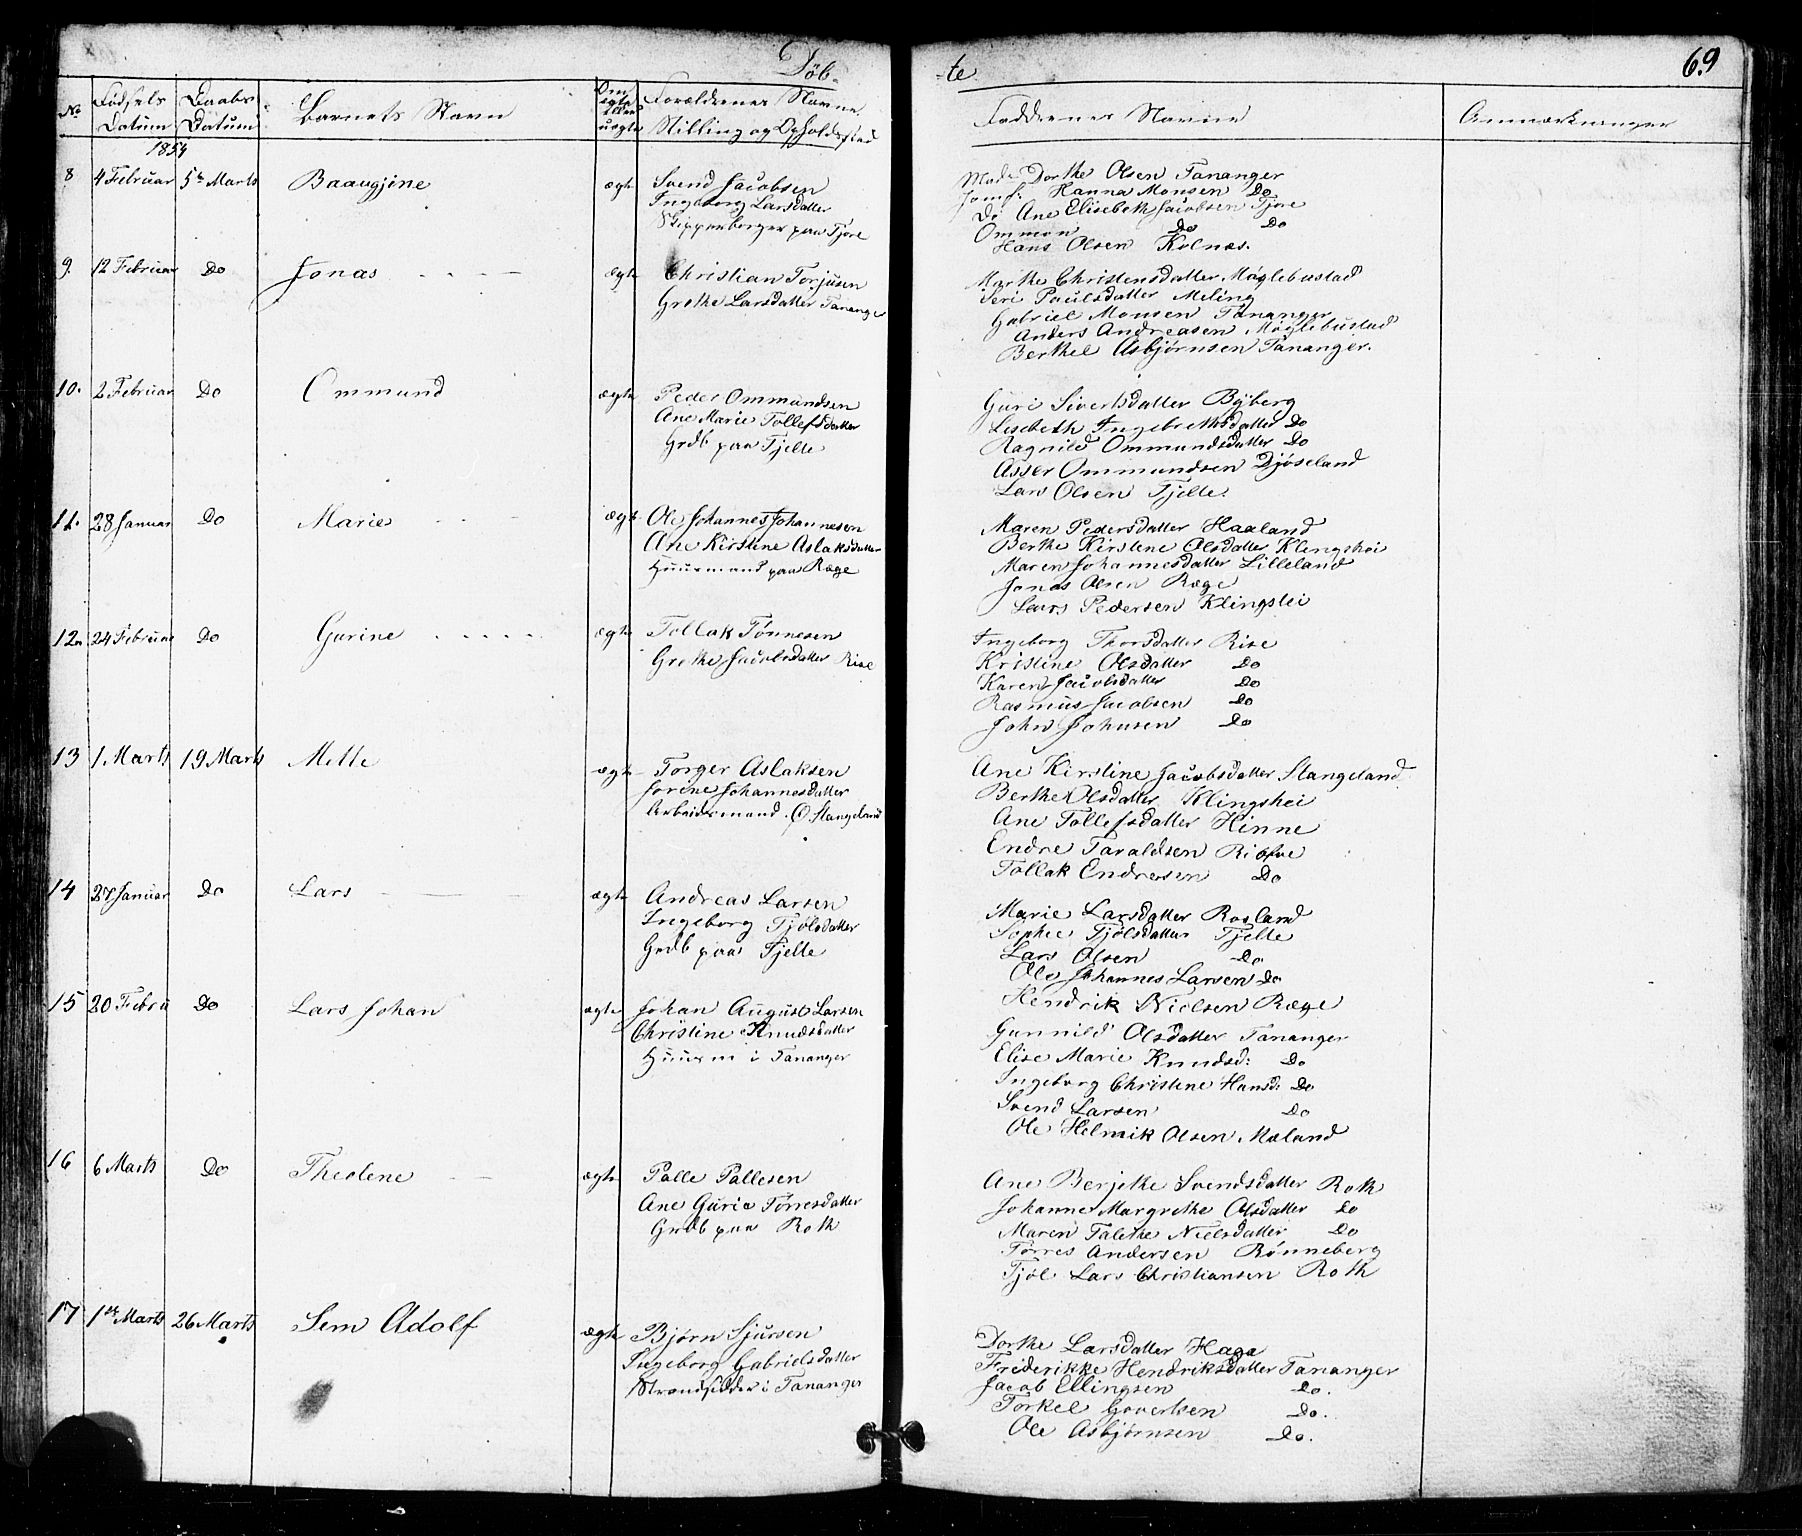 Døb-
-te
69
No
Fødsels Datum
Daabs Datum
Barnets Navn
Om ægte eller uægte
Forældrenes Navne, Stilling og Opholdssted
Faddrenes Navne
Anmærkninger
1854
8 4 Februar 5te Marts Baaugjine ægte
Svend Jacobsen
Ingeborg Larsdatter
Skippenborger paa Tjore
Dorthe Olsen Tananger
Jomf: Hanna Monsen Do
Do Ane Elisebeth Jacobsen Tjore
Ommon Do Do
Hans Olsen Kolnæs.
9. 12 Februar Do Jonas ægte
Christian Torjusen
Grethe Larsdatter Tananger
Marthe Christensdatter Møglebustad
Seri Paulsdatter Meling
Gabriel Monsen Tananger
Anders Andreasen Møglebustad
Berthel Asbjørnsen Tananger.
10. 2 Februar Do Ommund ægte
Peder Ommundsen
Ane Marie Tollefsdatter
Grdb paa Tjelte
Guri Sivertsdatter Byberg
Lisebeth Ingebrethsdatter Do
Ragnild Ommundsdatter Do
Asser Ommundsen Djøseland
Lars Olsen Tjelte.
11. 28 Januar Do Marie ægte
Ole Johannes Johannesen
Ane Kirstine Aslaksdatter
Huusmand paa Ræge
Maren Pedersdatter Haaland
Berthe Kirstene Olsdatter Klingshei
Maren Johannesdatter Lilleland
Jonas Olsen Ræge
Lars Pedersen Klingshei
12. 24 Februar Do Gurine ægte
Tollak Tønnesen
Grethe Jacobsdatter Rise
Ingeborg Thorsdatter Rise
Kristine Olsdatter Do
Karen Jacobsdatter Do
Rasmus Jacobsen Do
John Johnsen Do
13 1 Marts 19 Marts Mette ægte
Torger Aslaksen
Sorine Johannesdatter
Arbeidsmand. Ø. Stangeland
Ane Kirstine Jacobsdatter Stangeland
Berthe Olsdatter Klingshei
Ane Tollefsdatter Hinne
Endre Taraldsen
Tollak Endresen Do
14 27 Januar Do Lars ægte
Andreas Larsen
Ingeborg Tjølsdatter
Grdb paa Tjelte
Marie Larsdatter Rosland
Sophie Tjølsdatter Tjelte
Lars Olsen Do
Ole Johannes Larsen Do
Hendrik Nielsen Ræge
15 20 Febru Do Lars Johan ægte
Johan August Larsen
Christine Knudsdatter
Huusm i Tananger
Gunnild Olsdatter Tananger
Elise Marie Knudsd: Do
Ingeborg Christene Hansd: Do
Svend Larsen Do
Ole Helmik Olsen Mæland
16 6 Marts Do Theolene ægte
Palle Pallesen
Ane Gurie Tørresdatter
Grdb paa Roth
Ane Berjethe Svendsdatter Roth
Johanne Margrethe Olsdatter Do
Maren Talethe Nielsdatter Do
Tørres Andersen Rønneberg
Tjøl Lars Christiansen Roth
17 1ste Marts 26 Marts Sem Adolf ægte
Bjørn Sjursen
Ingeborg Gabrielsdatter
Strandsidder i Tananger
Dorthe Larsdatter Haga
Friderikke Hendriksdatter Tananger
Jacob Ellingsen Do.
Torkel Govertsen Do.
Ole Asbjørnsen Do.